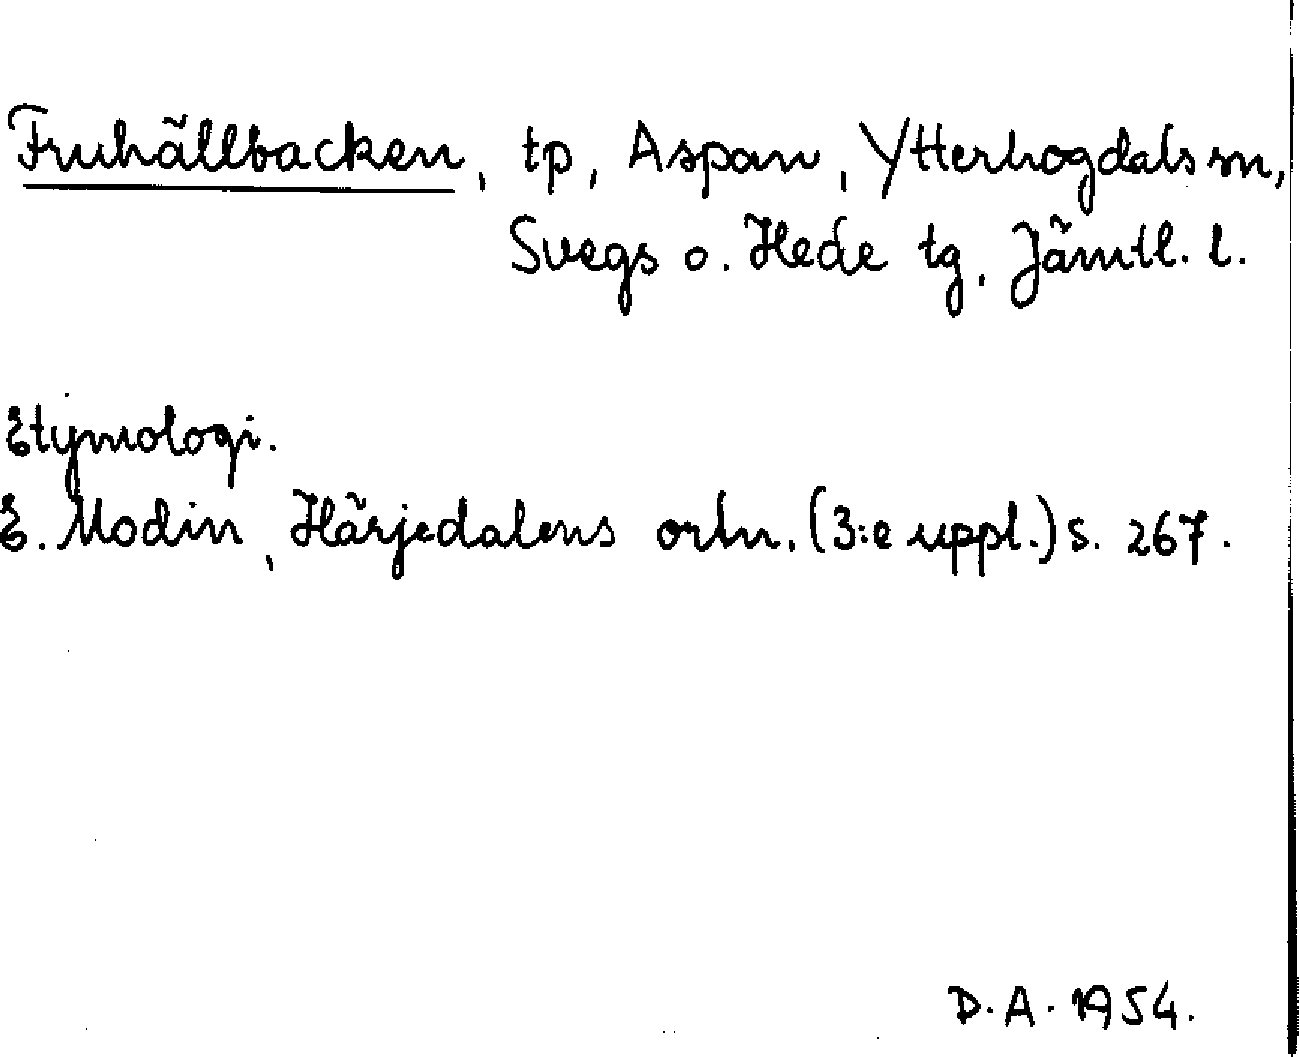 Fruhällbacken, tp, Aspan, Ytterhogdals sn,
Svegs o. Hede tg, Jämtl. l.
Etymologi.
E. Modin, Härjedalens ortn. (3:e uppl.) s. 267.
D.A. 1954.